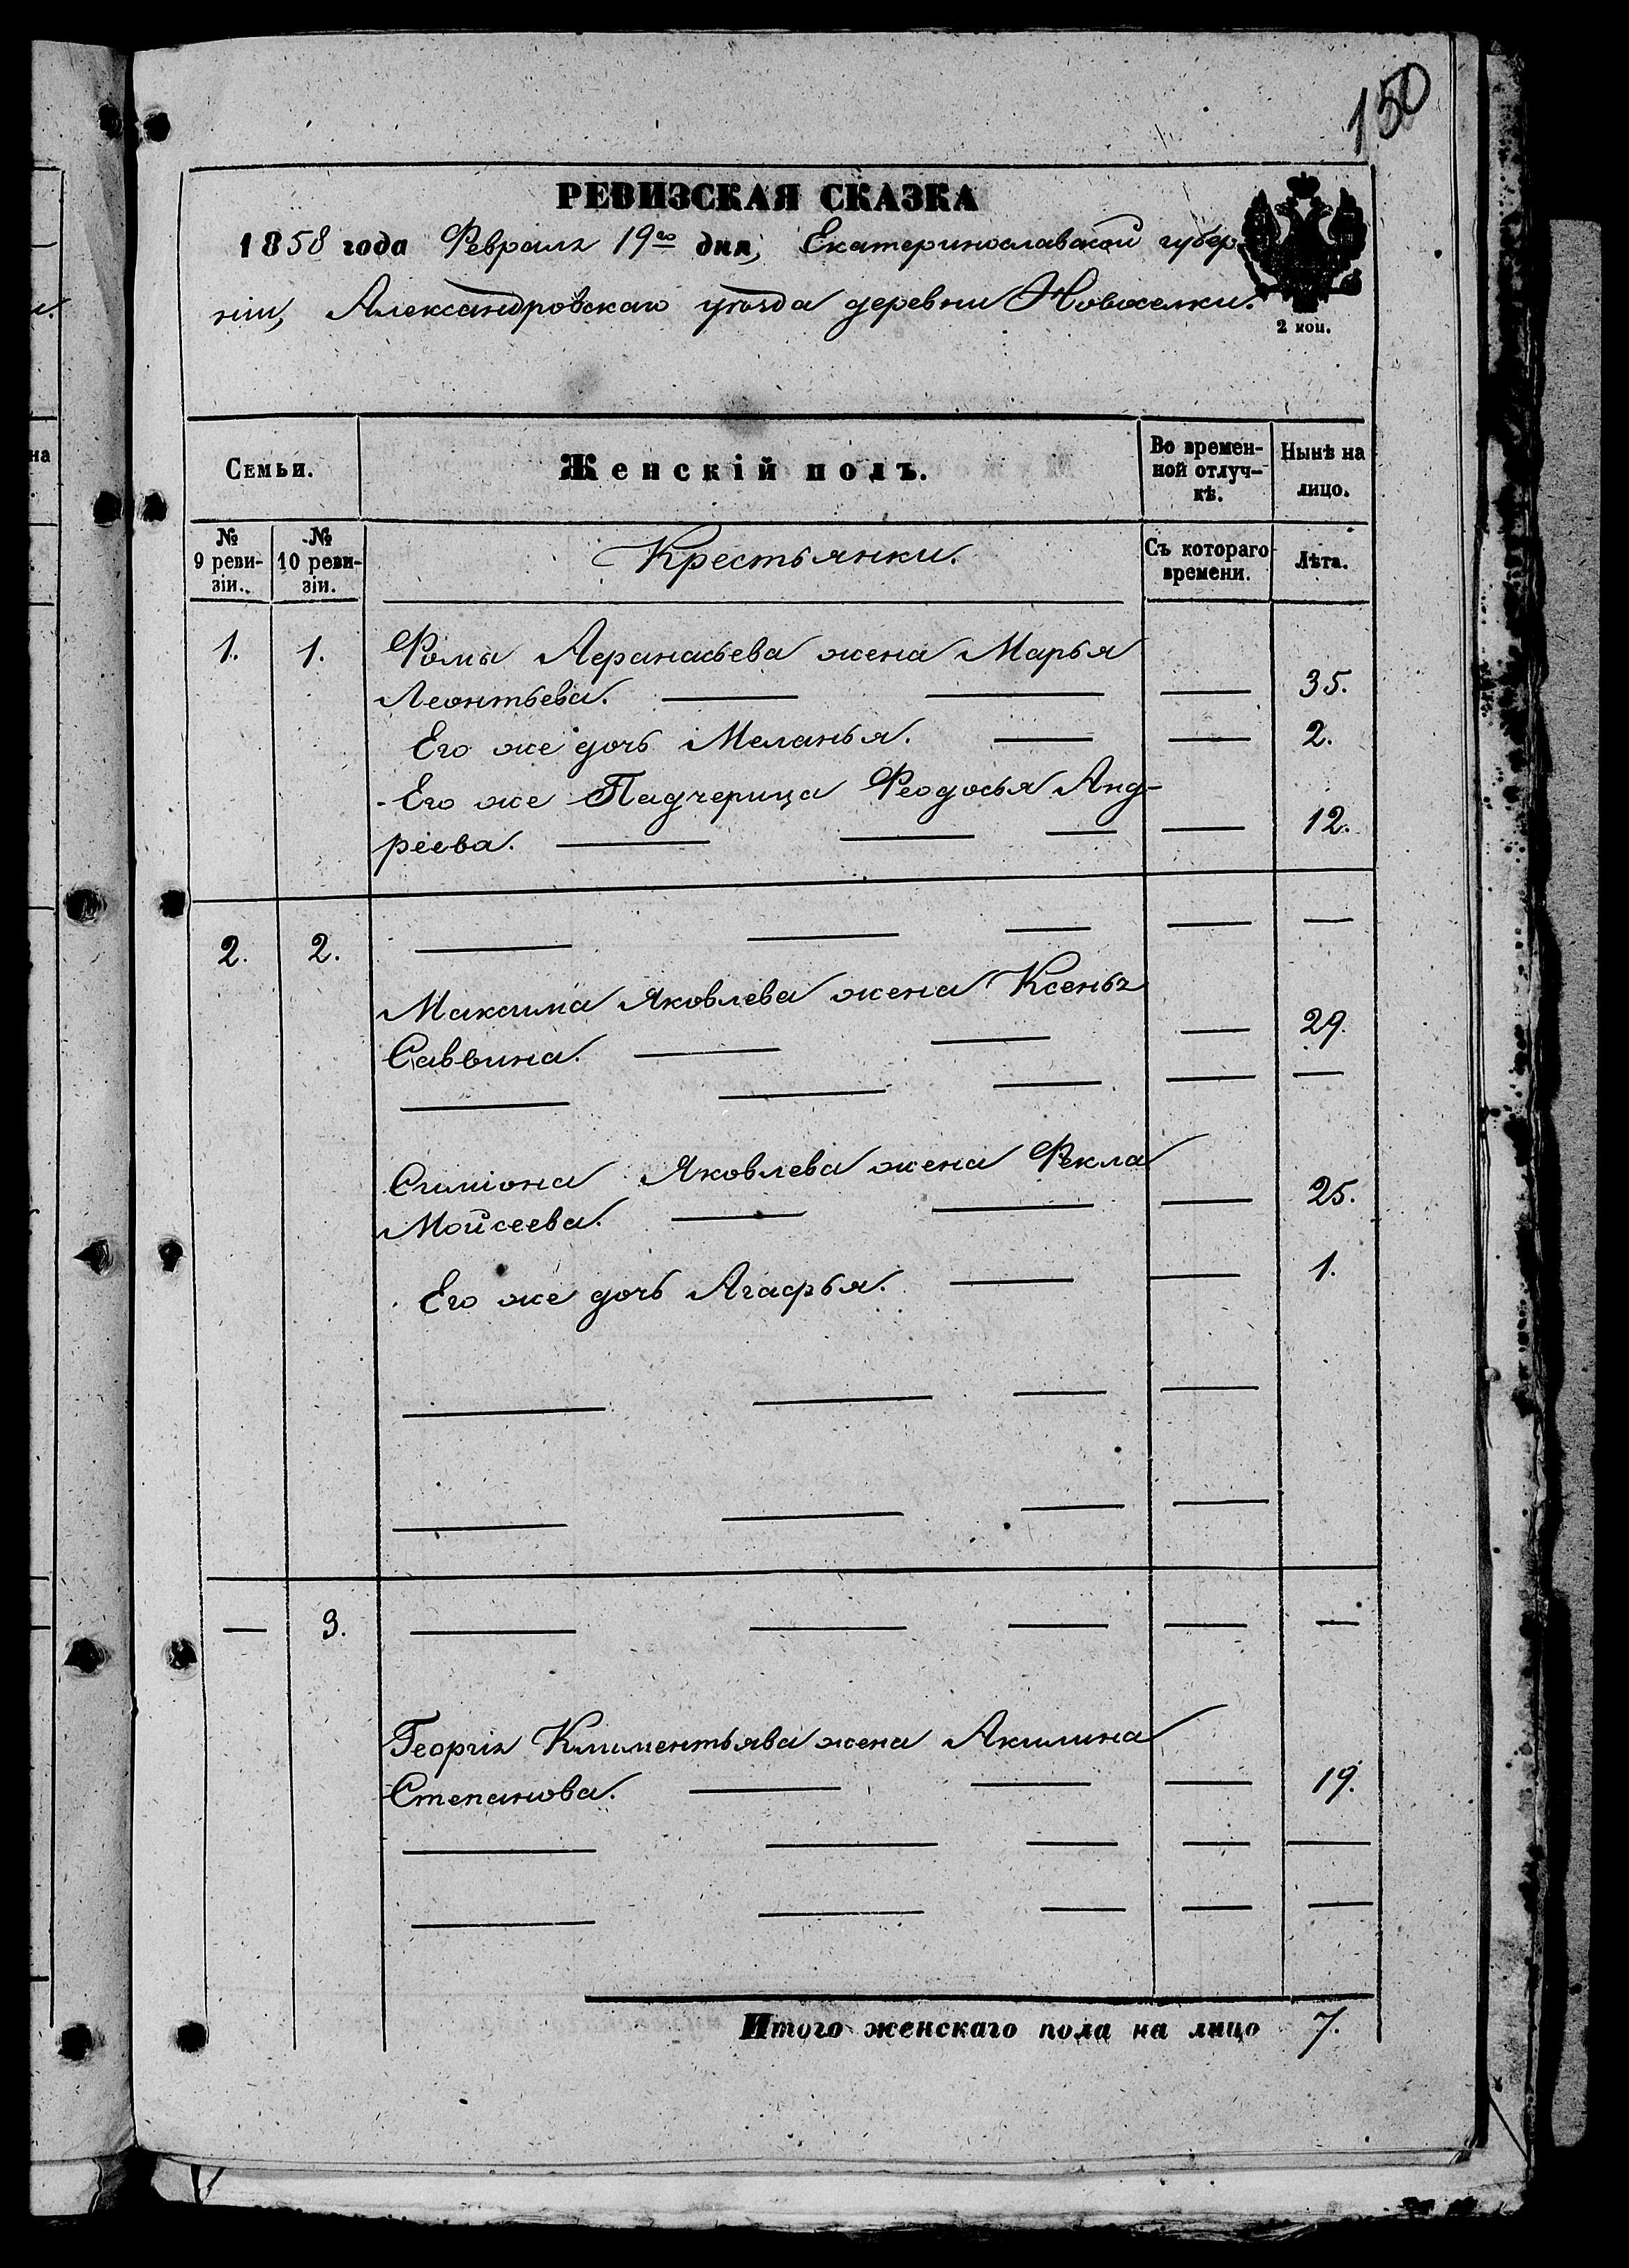 150
РЕВИЗСКАЯ СКАЗКА
1858 года Февраля 19го дня, Екатеринославской губер
ніи, Александровскаго уѣзда деревни Новоселки.
2 коп.
на
Семьи.
Женскій полъ.
Во времен-
ной отлуч-
кѣ.
Нынѣ на
лицо.
№
9 реви-
зіи.
№
10 реви-
зіи.
Крестьянки.
Съ котораго
времени.
Лѣта.
1. 1. Фомы Афанасьева жена Марья
Леонтьева. — — — 35.
Его же дочь Меланья. — — 2.
Его же Падчерица Феодосья Анд-
реева. — — — — 12.
2. 2. — — — — —
Максима Яковлева жена Ксенья
Саввина. — — — 29.
— — — — —
Симіона Яковлева жена Фекла
Мойсеева. — — — 25.
Его же дочь Агафья. — — 1.
— — — —
— — — —
— 3. — — — — —
Георгія Климентьява жена Акилина
Степанова. — — — 19.
— — — — —
— — — — —
Итого женскаго пола на лицо 7.